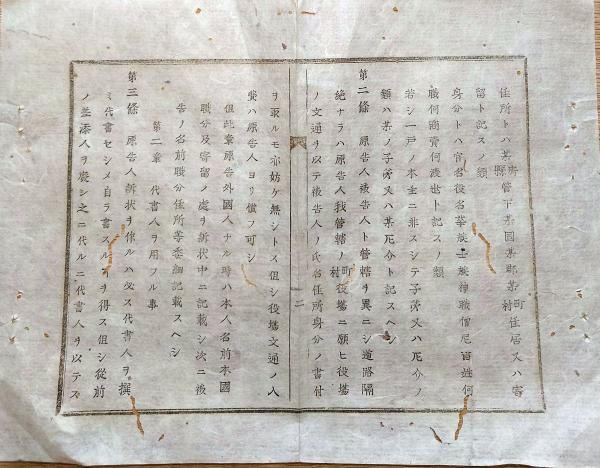 住所トハ某府縣管下某國某郡某町村住居又ハ寄
留ト記スノ類
身分トハ官名役名華族士族神職僧尼百姓何
職何商賣何渡世ト記スノ類
若シ一戸ノ本主ニ非スシテ子弟又ハ厄介ノ
類ハ某ノ子弟又ハ某厄介ト記スヘシ
第二條 原告人被告人ト管轄ヲ異ニシ道路隔
絶ナラハ原告人我管轄ノ町村役場ニ願ヒ役場
ノ文通ヲ以テ被告人ノ氏名住所身分ノ書付
二
ヲ取ルモ亦妨ケ無シトス但シ役場文通ノ入
費ハ原告人ヨリ償フ可シ
但此章原告外國人ナル時ハ本人名前本國
職分及寄留ノ處ヲ訴状中ニ記載シ次ニ被
告ノ名前職分住所等委細記載スヘシ
第二章 代書人ヲ用フル事
第三條 原告人訴状ヲ作ルハ必ス代書人ヲ撰
ミ代書セシメ自ラ書スルヿヲ得ス但シ從前
ノ差添人ヲ廢シ之ニ代ルニ代書人ヲ以テス